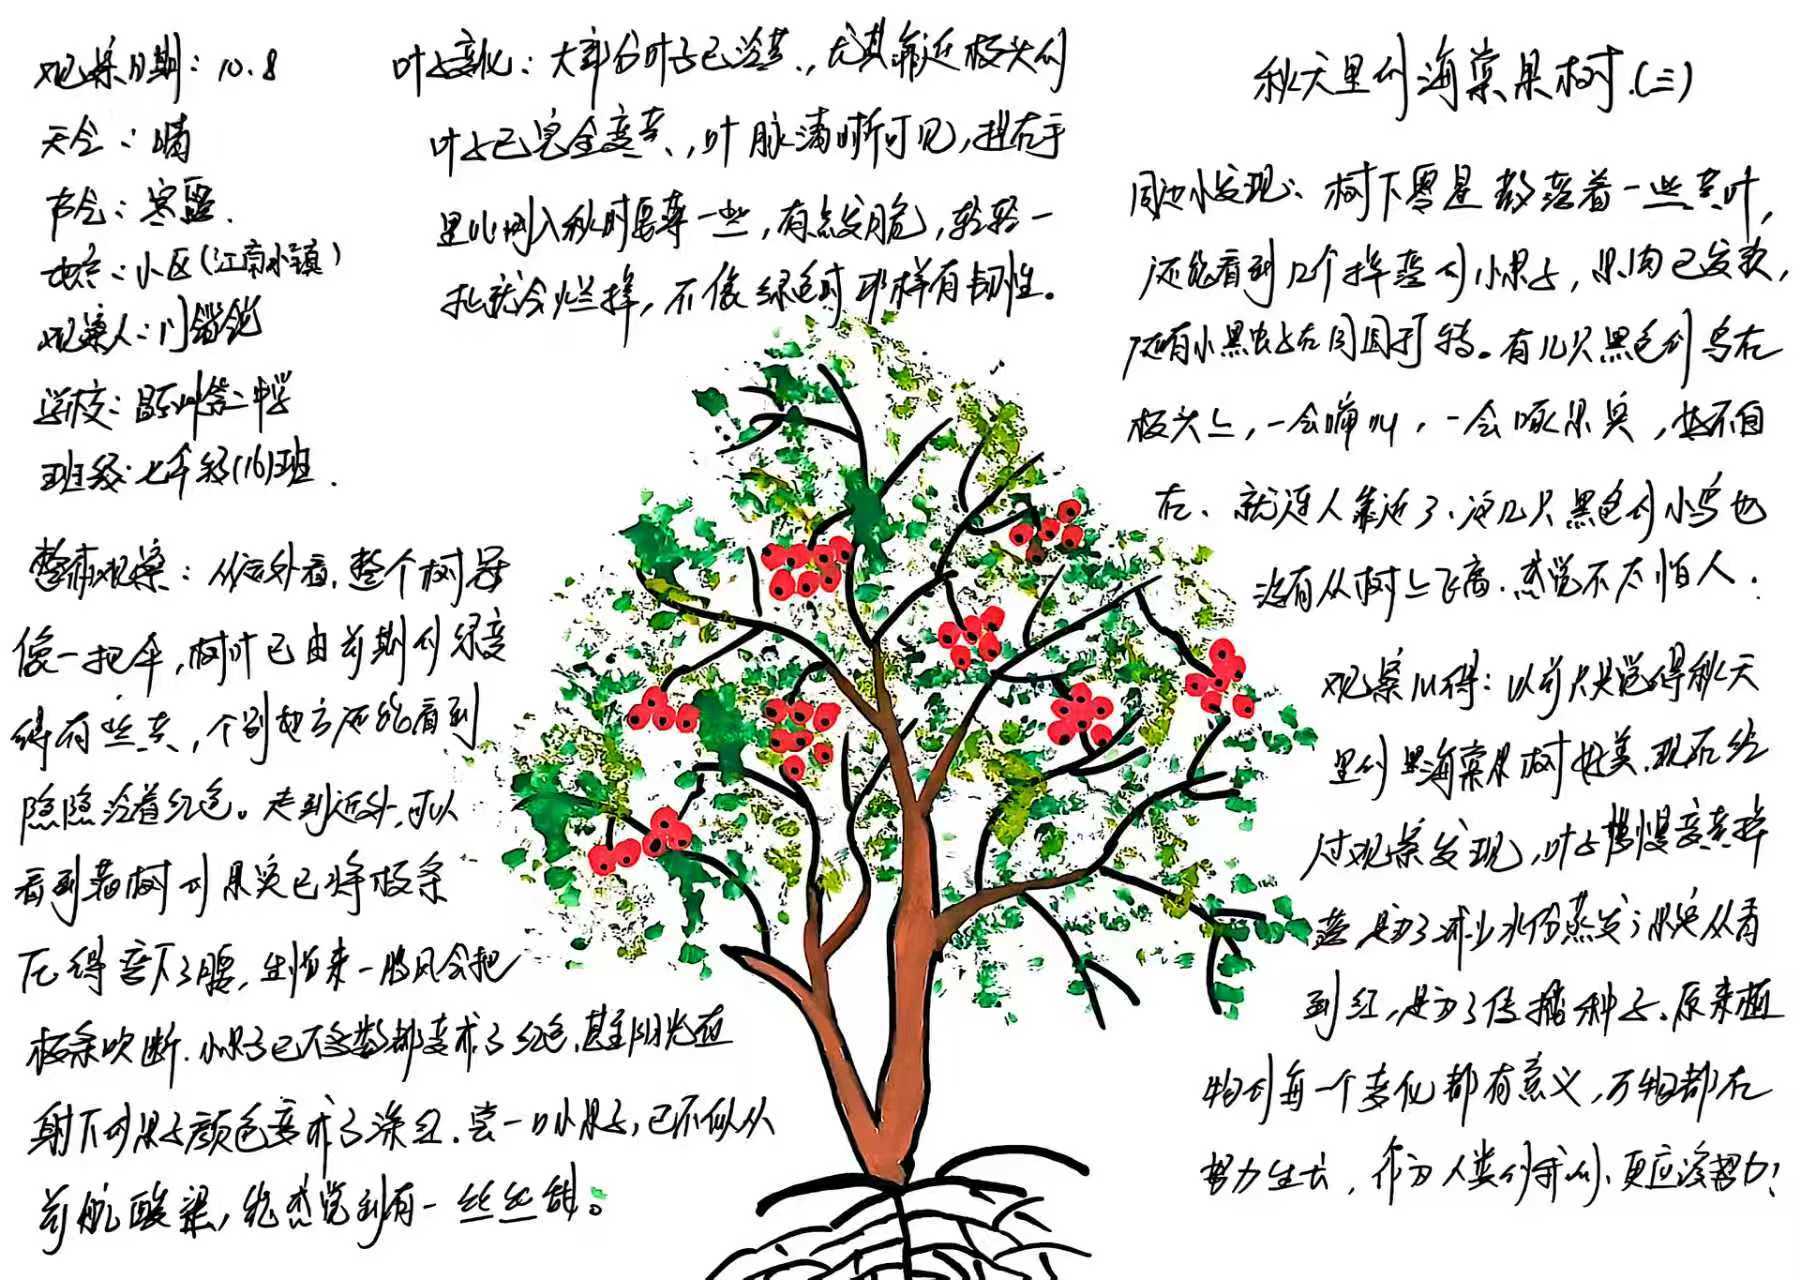 秋天里的海棠果树(三)
观察日期：10.8
天气：晴
节气：寒露.
地点：小区(江南小镇)
观察人：
学校：昌乐二中学
班级：七年级(16)班.
叶子变化：大部分叶子已泛黄，尤其靠近枝头的
叶子已完全变黄，叶脉清晰可见，捏在手
里比刚入秋时要薄一些，有点发脆，轻轻一
扎就会烂掉，不像绿色时那样有韧性。
整体观察：从远处看，整个树冠
像一把伞，树叶已由前期的绿变
得有些黄，个别地方还能看到
隐隐泛着红色。走到近处，可以
看到满树的果实已将枝条
压得弯下了腰，生怕来一阵风会把
枝条吹断.小果子已不多数都变成了红色，甚至阳光直
射下的果子颜色变成了深红.尝一口小果子，已不似从
前般酸涩，能感觉到有一丝丝甜。
周边小发现：树下零星散落着一些黄叶，
还能看到几个掉落的小果子，果肉已发软，
还有小黑虫子在周围打转。有几只黑色的鸟在
枝头上，一会啼叫，一会啄果实，好不自
在、就连人靠近了、这几只黑色的小鸟也
没有从树上飞离.感觉不太怕人.
观察心得：以前只觉得秋天
里的海棠果树好美.现在经
过观察发现，叶子慢慢变黄掉
落是为了减少水份蒸发；果实从青
到红，是为了传播种子.原来植
物的每一个变化都有意义，万物都在
努力生长，作为人类的我们、更应该努力！